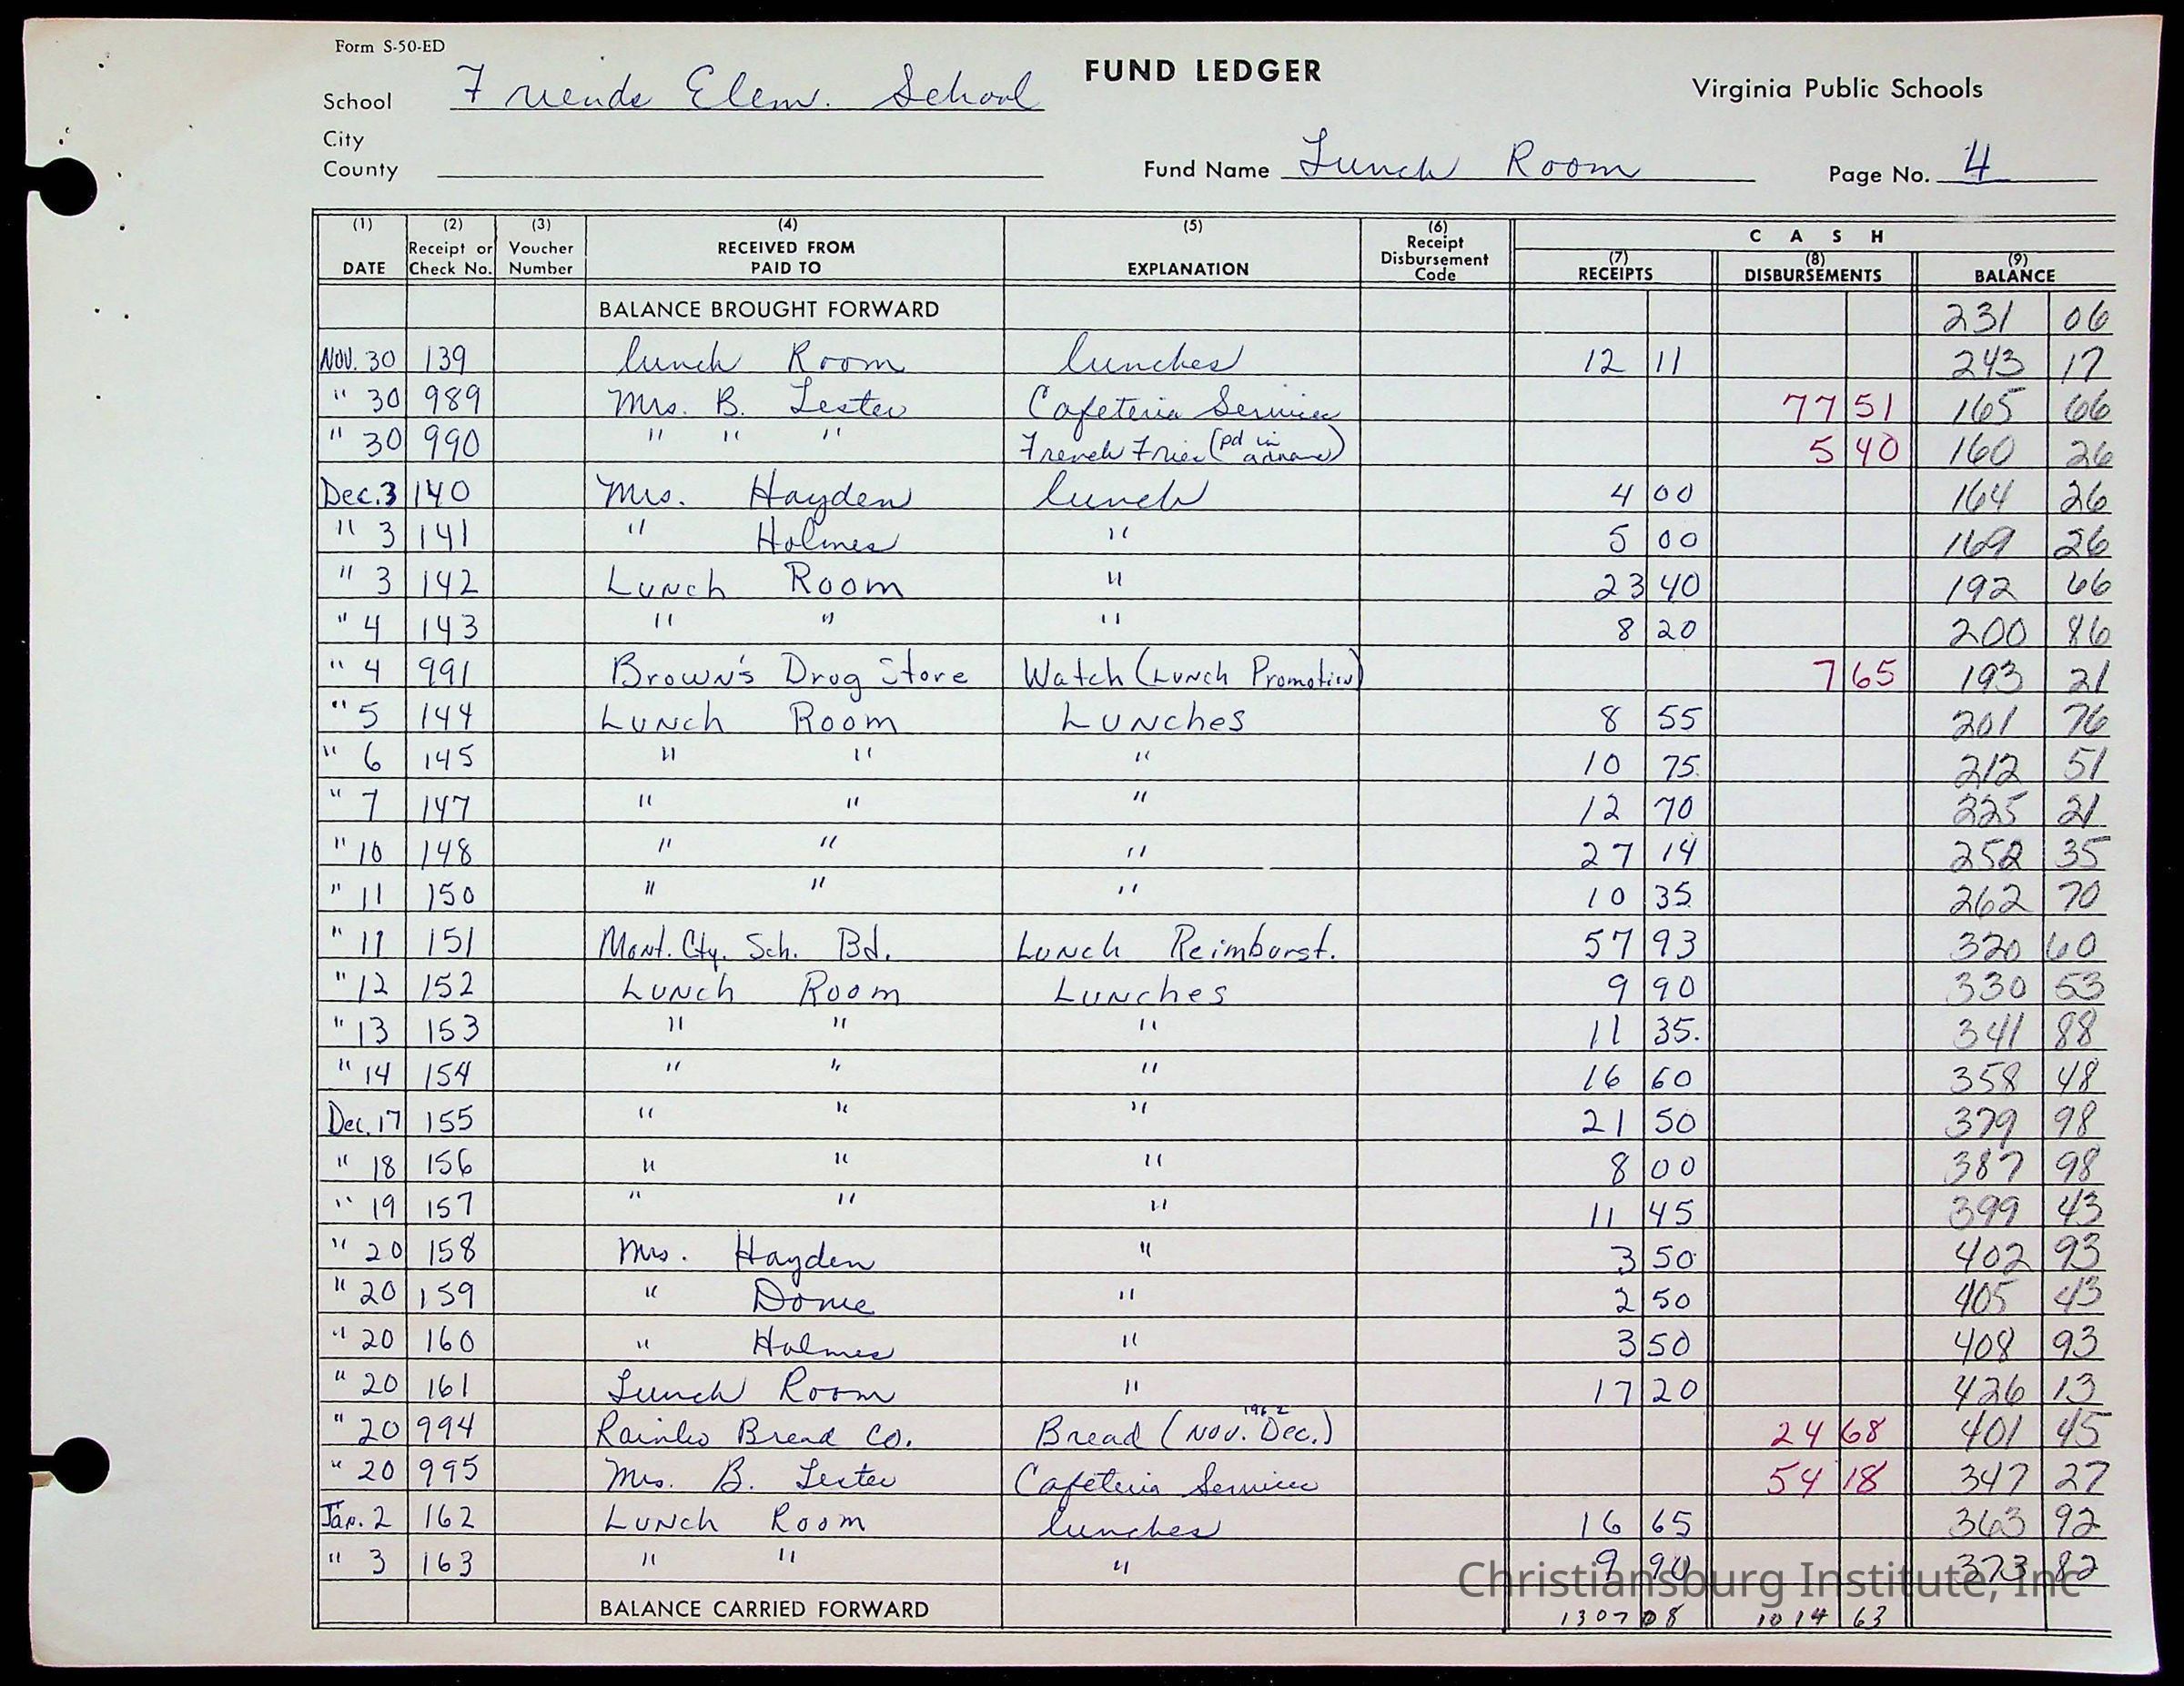 Form S-50-ED
FUND LEDGER
Virginia Public Schools
School Friends Elem. School
City
County
Fund Name Lunch Room
Page No. 4
(1) (2) (3) (4) (5) (6) C A S H
DATE Receipt or Check No. Voucher Number RECEIVED FROM PAID TO EXPLANATION Receipt Disbursement Code (7) RECEIPTS (8) DISBURSEMENTS (9) BALANCE
BALANCE BROUGHT FORWARD 231 06
Nov. 30 139 lunch Room lunches 12 11 243 17
" 30 989 Mrs. B. Lester Cafeteria Service 77 51 165 66
" 30 990 " " " French Fries (pd in advance) 5 40 160 26
Dec. 3 140 Mrs. Hayden lunch 4 00 164 26
" 3 141 " Holmes " 5 00 169 26
" 3 142 Lunch Room " 23 40 192 66
" 4 143 " " " 8 20 200 86
" 4 991 Brown's Drug Store Watch (Lunch Promotion) 7 65 193 21
" 5 144 Lunch Room Lunches 8 55 201 76
" 6 145 " " " 10 75 212 51
" 7 147 " " " 12 70 225 21
" 10 148 " " " 27 14 252 35
" 11 150 " " " 10 35 262 70
" 11 151 Mont. Cty. Sch. Bd. Lunch Reimburst. 57 93 320 60
" 12 152 Lunch Room Lunches 9 90 330 53
" 13 153 " " " 11 35. 341 88
" 14 154 " " " 16 60 358 48
Dec. 17 155 " " " 21 50 379 98
" 18 156 " " " 8 00 387 98
" 19 157 " " " 11 45 399 43
" 20 158 Mrs. Hayden " 3 50 402 93
" 20 159 " " 2 50 405 43
" 20 160 " Holmes " 3 50 408 93
" 20 161 Lunch Room " 17 20 426 13
" 20 994 Rainbo Bread Co. Bread (Nov. Dec.) 1962 24 68 401 45
" 20 995 Mrs. B. Lester Cafeteria Service 54 18 347 27
Jan. 2 162 Lunch Room lunches 16 65 363 92
" 3 163 " " " 9 90 373 82
BALANCE CARRIED FORWARD 1307 08 1014 63
Christiansburg Institute, Inc